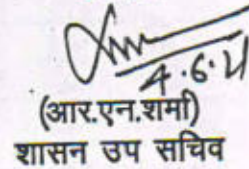 4.6.21
(आर.एन.शर्मा)
शासन उप सचिव